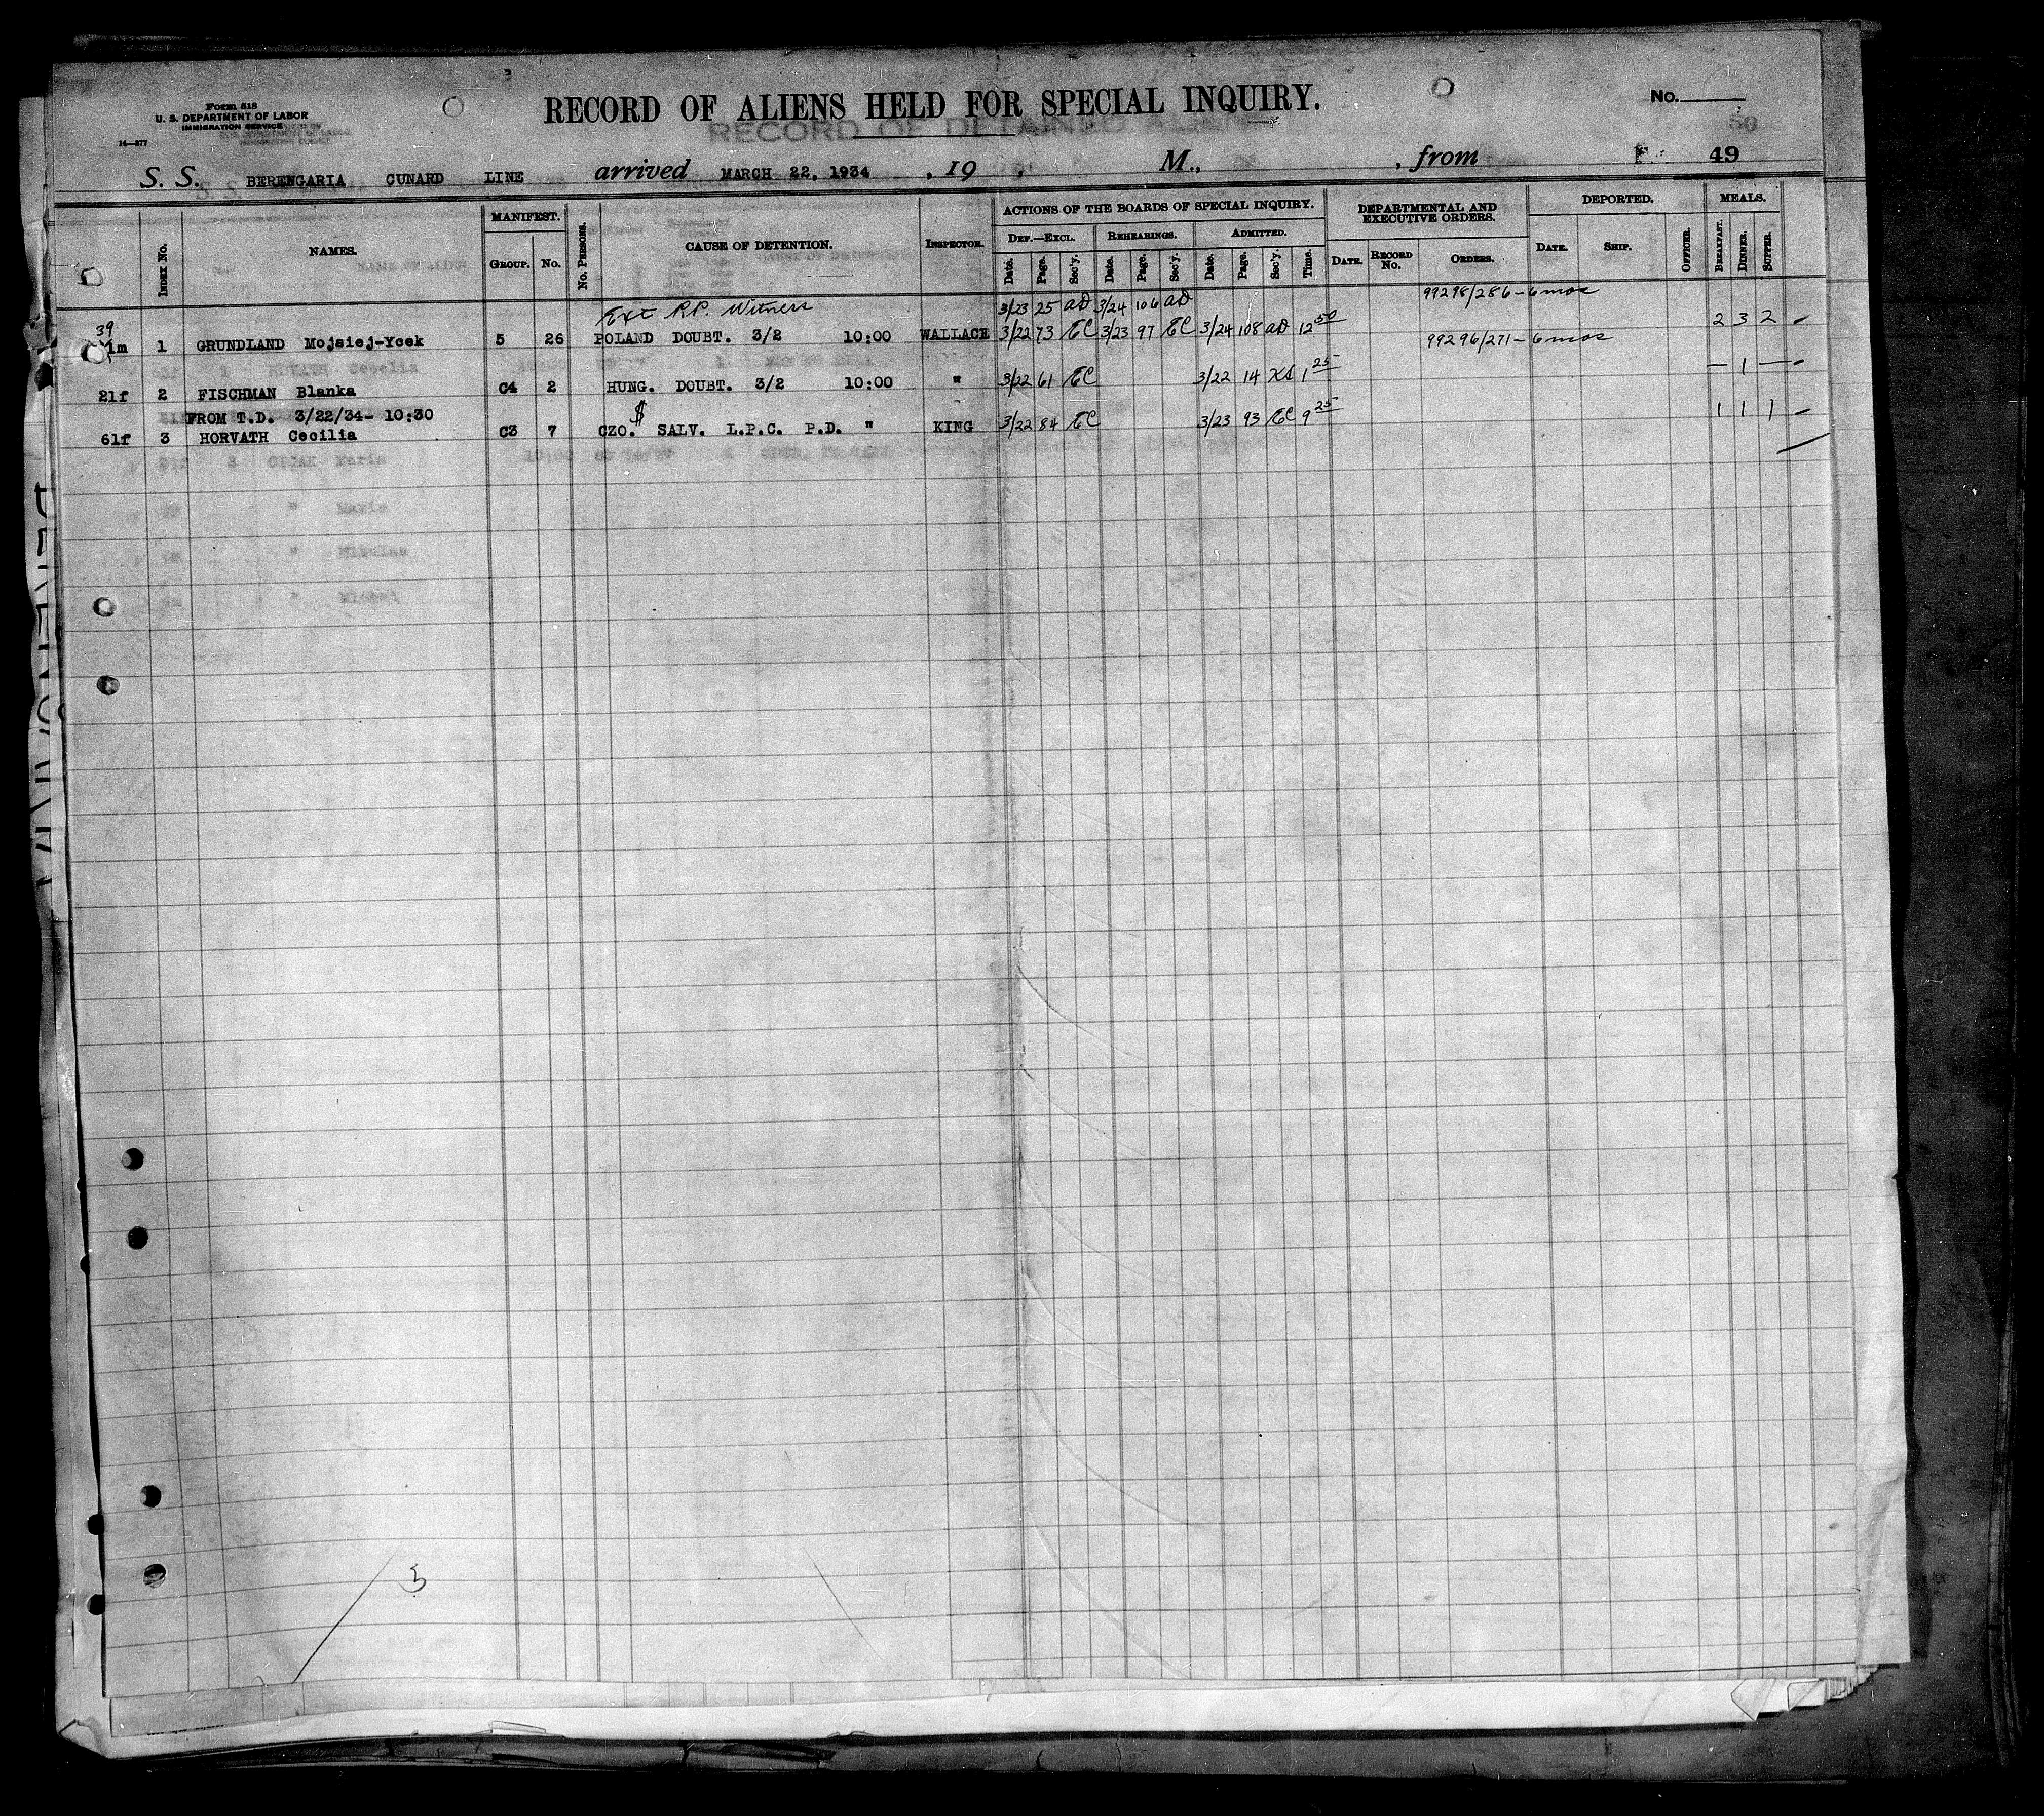 Form 518
U. S. DEPARTMENT OF LABOR
IMMIGRATION SERVICE
14—577
RECORD OF ALIENS HELD FOR SPECIAL INQUIRY.
No.
50
RECORD OF DETAINED
S. S. BERENGARIA CUNARD LINE arrived MARCH 22, 1934 , 19 , M., , from 49
INDEX No. NAMES. MANIFEST. GROUP. No. No. PERSONS. CAUSE OF DETENTION. INSPECTOR. ACTIONS OF THE BOARDS OF SPECIAL INQUIRY. DEF.—EXCL. Date. Page. Sec'y. REHEARINGS. Date. Page. Sec'y. ADMITTED. Date. Page. Sec'y. Time. DEPARTMENTAL AND EXECUTIVE ORDERS. DATE. RECORD No. ORDERS. DEPORTED. DATE. SHIP. OFFICER. MEALS. BREAKFAST. DINNER. SUPPER.
Ext R.P. Witness 3/23 25 AD 3/24 106 AD 99298/286 - 6 mos
39
1m 1 GRUNDLAND Mojsiej-Ycek 5 26 POLAND DOUBT. 3/2 10:00 WALLACE 3/22 73 EC 3/23 97 EC 3/24 108 AD 12 50 2 3 2
99296/271 - 6 mos
21f 2 FISCHMAN Blanka C4 2 HUNG. DOUBT. 3/2 10:00 " 3/22 61 EC 3/22 14 1 25 — 1 —
FROM T.D. 3/22/34- 10:30
$
61f 3 HORVATH Cecilia C3 7 CZO. SALV. L.P.C. P.D. " KING 3/22 84 EC 3/23 93 EC 9 25 1 1 1
3